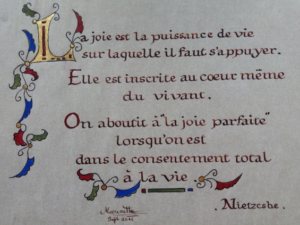 La joie est la puissance de vie
sur laquelle il faut s'appuyer.
Elle est inscrite au coeur même
du vivant.
On aboutit à "la joie parfaite"
lorsqu'on est
dans le consentement total
à la vie.
. Nietzcshe .
Sept.